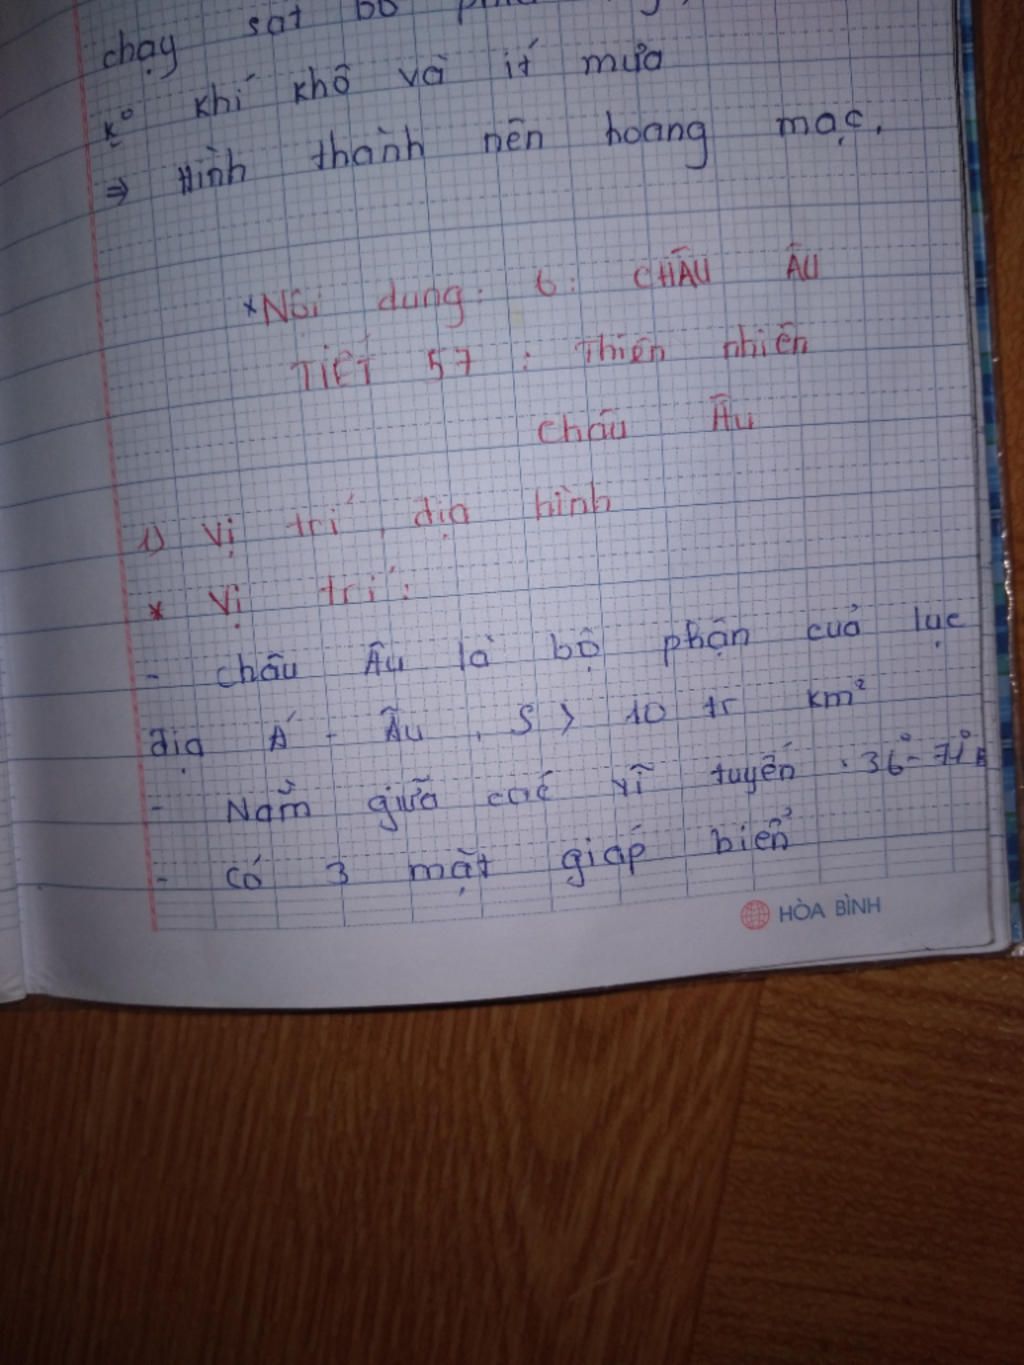 chạy sát bờ
k⁰ khí khô và ít mưa
⇒ Hình thành nên hoang mạc.
*Nội dung: 6: CHÂU ÂU
TIẾT 57 : Thiên nhiên
Châu Âu
1) Vị trí, địa hình
* Vị trí:
- Châu Âu là bộ phận của lục
địa Á - Âu, S > 10 tr km²
- Nằm giữa các vĩ tuyến: 36⁰- 71⁰B
- Có 3 mặt giáp biển
HÒA BÌNH